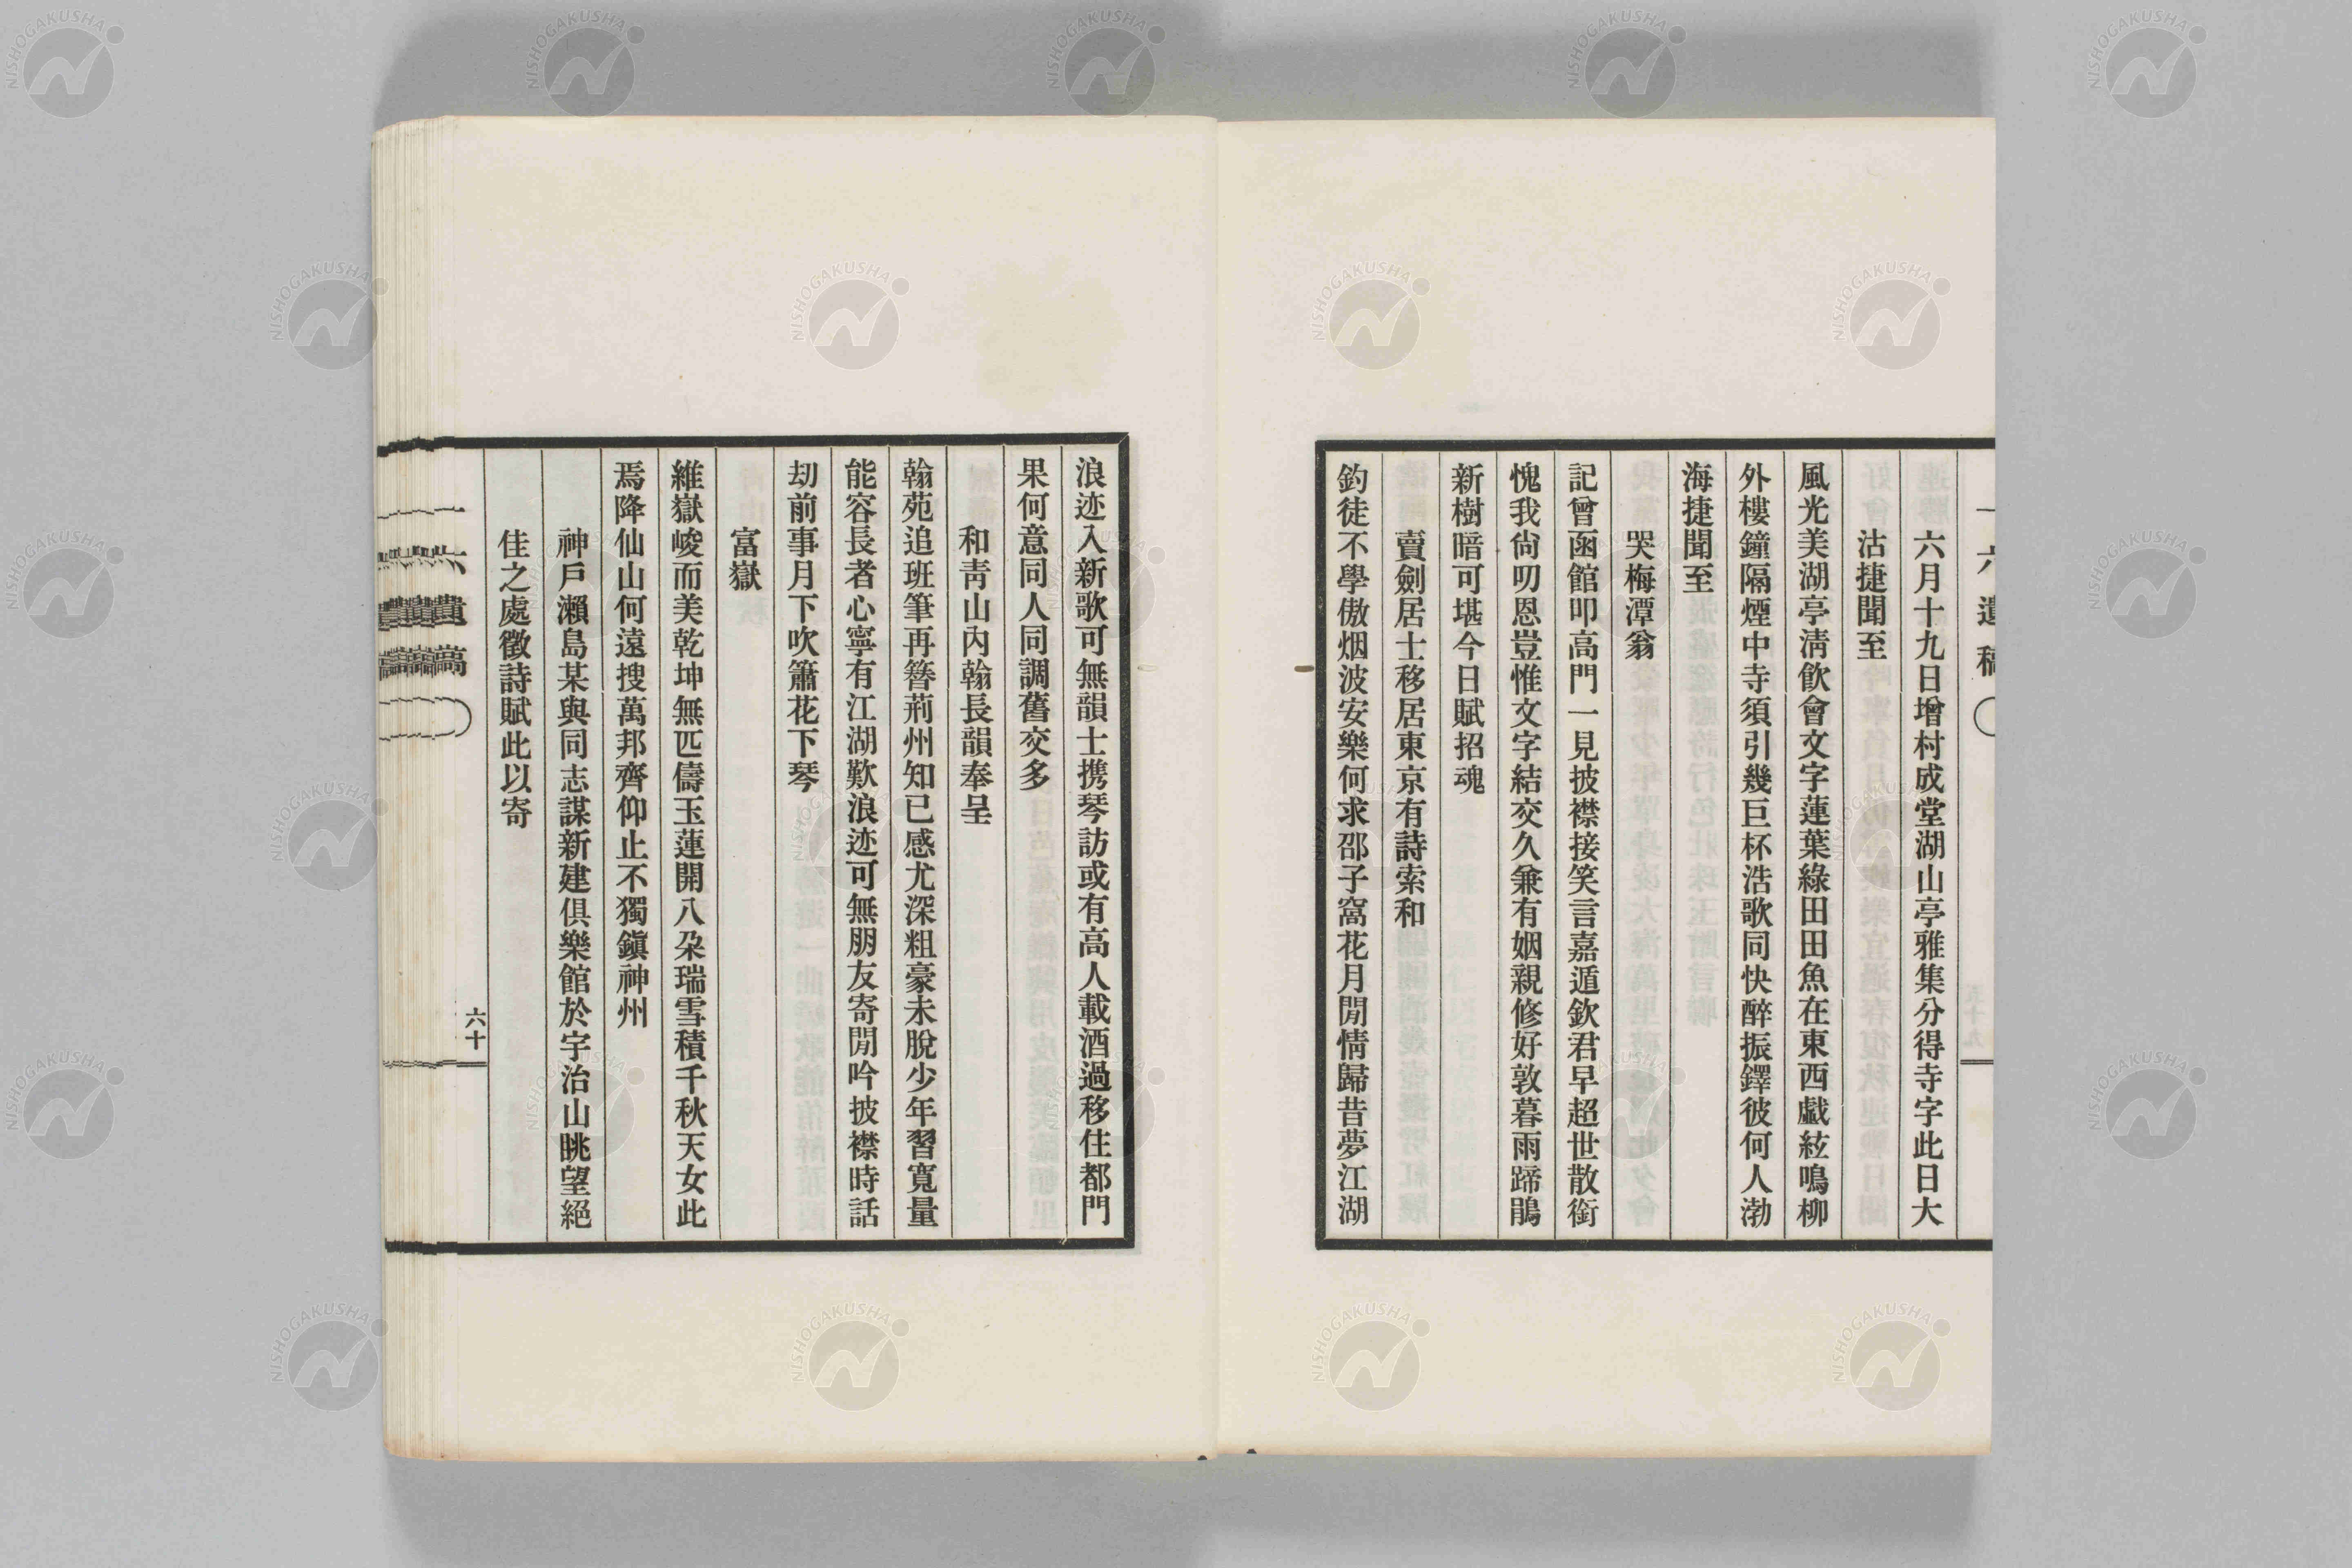 一六遺稿
六月十九日增村成堂湖山亭雅集分得寺字此日大
沽捷聞至
風光美湖亭淸飮會文字蓮葉綠田田魚在東西戲絃鳴柳
外樓鐘隔煙中寺須引幾巨杯浩歌同快醉振鐸彼何人渤
海捷聞至
哭梅潭翁
記曾函館叩高門一見披襟接笑言嘉遁欽君早超世散銜
愧我尙叨恩豈惟文字結交久兼有姻親修好敦暮雨蹄鵑
新樹暗可堪今日賦招魂
賣劍居士移居東京有詩索和
釣徒不學傲烟波安樂何求邵子窩花月閒情歸昔夢江湖
浪迹入新歌可無韻士携琴訪或有高人載酒過移住都門
果何意同人同調舊交多
和靑山內翰長韻奉呈
翰苑追班筆再簪荊州知已感尤深粗豪未脫少年習寬量
能容長者心寧有江湖歎浪迹可無朋友寄閒吟披襟時話
刧前事月下吹簫花下琴
富嶽
維嶽峻而美乾坤無匹儔玉蓮開八朶瑞雪積千秋天女此
焉降仙山何遠搜萬邦齊仰止不獨鎭神州
神戶瀨島某與同志謀新建俱樂館於宇治山眺望絕
佳之處徵詩賦此以寄
一六遺稿
六十
NISHOGAKUSHA